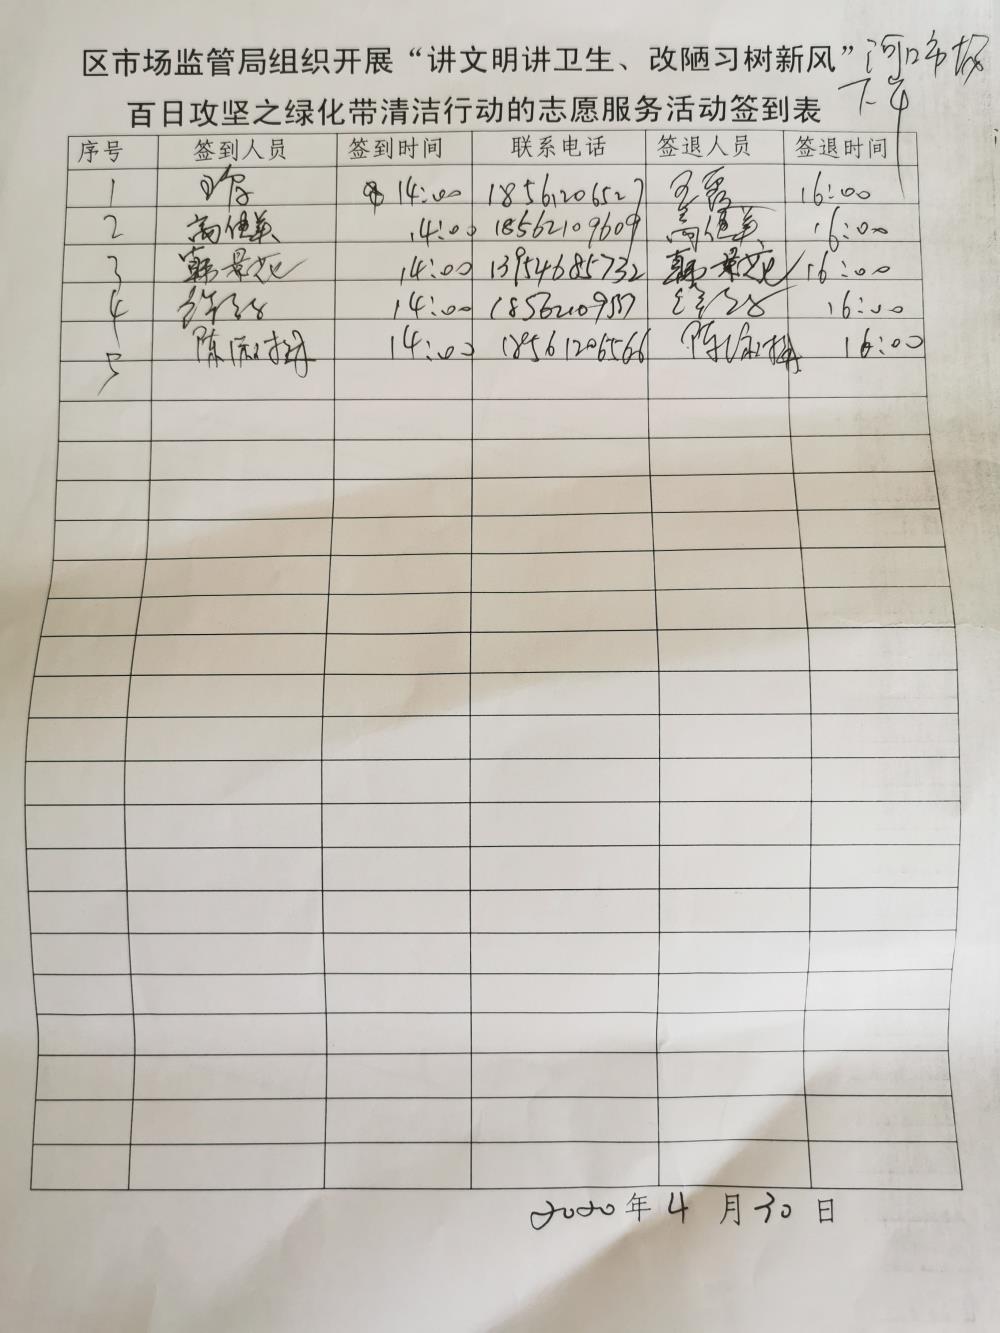 区市场监管局组织开展“讲文明讲卫生、改陋习树新风” 河口市场
百日攻坚之绿化带清洁行动的志愿服务活动签到表 下午
序号 签到人员 签到时间 联系电话 签退人员 签退时间
1 14:00 18561206527 16:00
2 高健美 14:00 18562109609 高健美 16:00
3 韩景苑 14:00 13954685732 韩景苑 16:00
4 14:00 16:00
5 陈淑梅 14:00 18561206566 陈淑梅 16:00
2020年4月30日